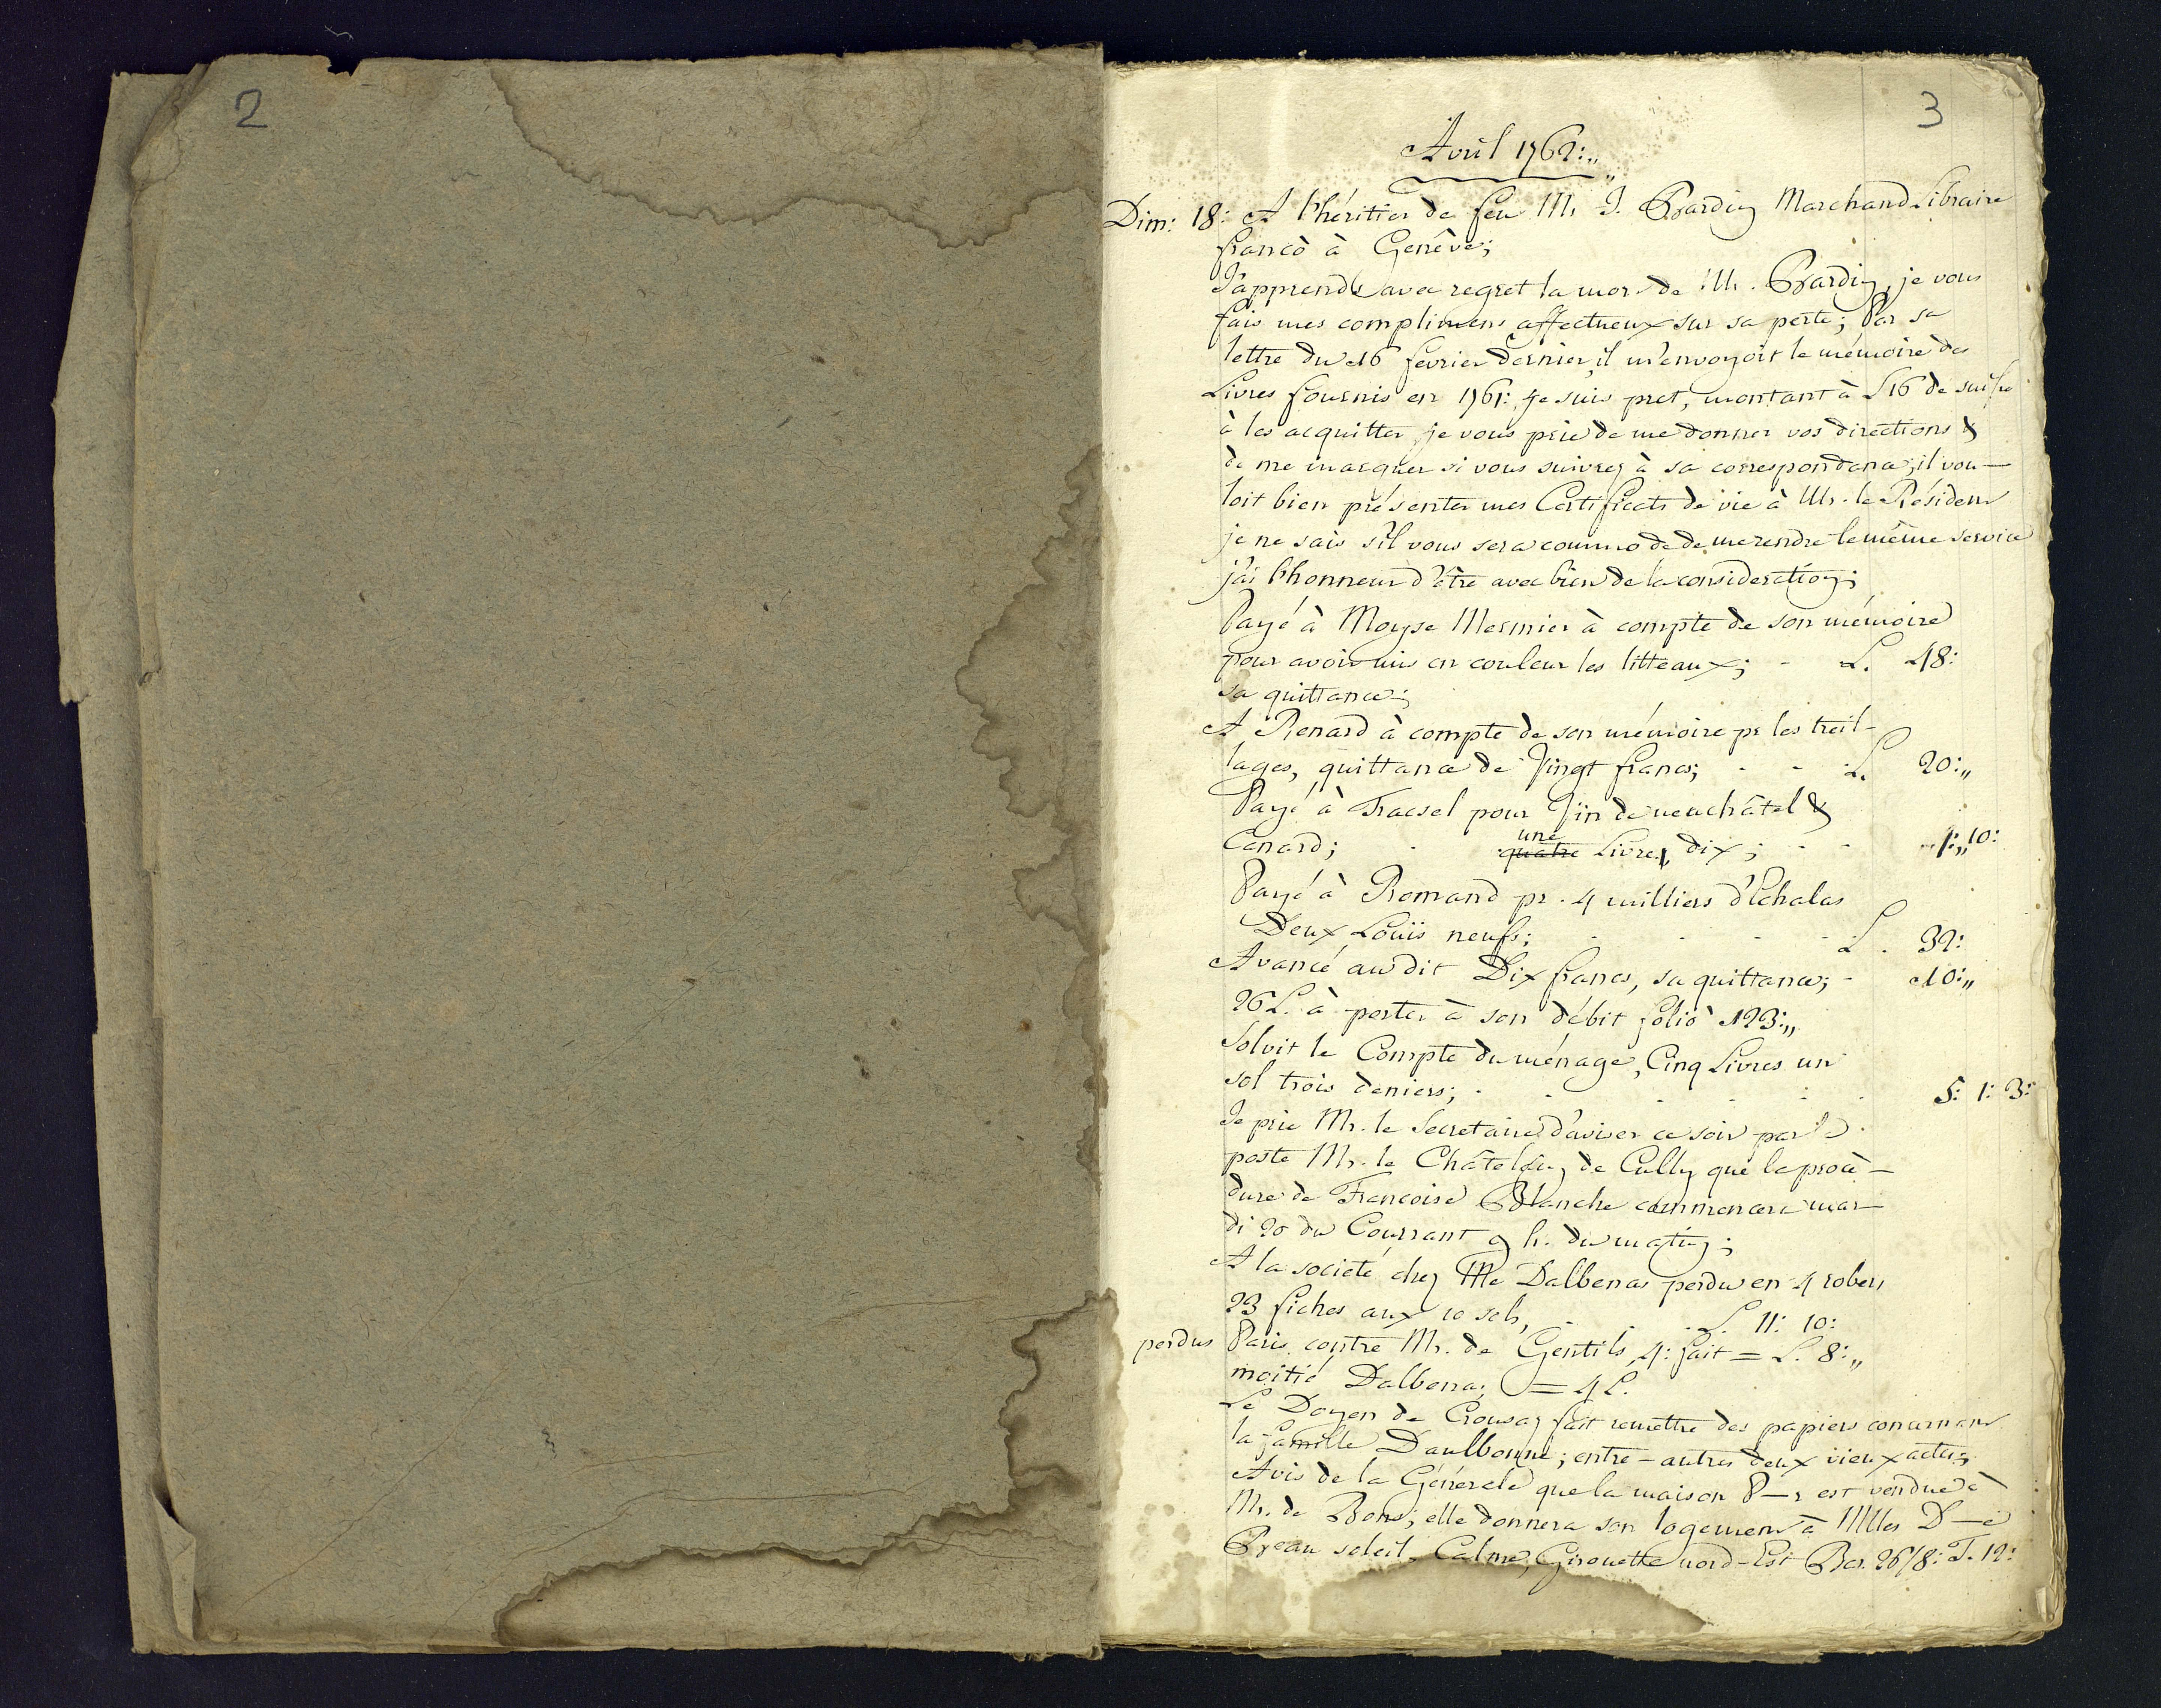 2
3
Avril 1762:,,
Dim: 18: A l'héritier de feu Mr J. Bardin Marchand Libraire
franco à Genêve;
J'apprends avec regret la mort de Mr. Bardin, je vous
fais mes complimens affectueux sur sa perte; Par sa
lettre du 16 fevrier dernier, il m'envoyoit le mémoire des
Livres fournis en 1761: je suis pret, montant à L 16 de suisse
à les acquitter, je vous prie de me donner vos directions &
de me marquer si vous suivrez à sa correspondance; il vou-
loit bien présenter mes Certificats de vie à Mr. le Résident
je ne sais s'il vous sera commode de me rendre le même service
j'ai l'honneur d'être avec bien de la consideration;
Payé à Moyse Mermier à compte de son mémoire
pour avoir mis en couleur les litteaux; - L. 48:
sa quittance;
A Renard à compte de son mémoire pr les treil-
lages, quittance de Vingt francs; - - L. 20:,,
Payé à Tracsel pour Vin de neuchâtel &
Canard; - quatre une Livre,, dix; - - 1:,,10:
Payé à Romand pr. 4 milliers d'Echalas
Deux Louïs neufs; - - - L. 32:
Avancé au dit Dix francs, sa quittance; - 10:,,
26 L. à porter à son débit folio 123:,,
Solvit le Compte du ménage, Cinq Livres un
sol trois deniers; - - - - - 5: 1: 3:
Je prie Mr. le Secretaire d'aviser ce soir par la
poste Mr. le Châtelain de Cully que la procé-
dure de Francoise Blanche commencera mar-
di 20 du Courrant 9 h. du matin;
A la societé chez Me Dalbenas perdu en 4 robers
23 fiches aux 10 sols, - - L. 11: 10:
perdus Paris contre Mr. de Gentils, 4: fait = L. 8:,,
moitié Dalbenas; = 4 L.
Le Doyen de Crousaz fait remettre des papiers concernant
la famille Daulbonne; entre-autres deux vieux actes;
Avis de la Générale que la maison P-r est vendue à
Mr. de Bons; elle donnera son logement à Mlles D-e
Beau soleil. Calme, Girouette nord-Est Bar. 26/8: T. 12: